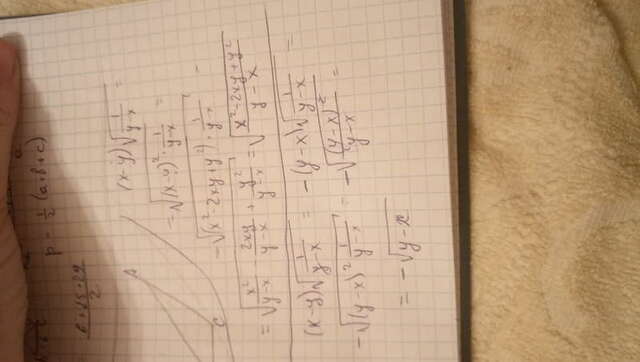 p = 1/2 (a+b+c)
A
C
(x-y)√(1/(y-x)) =
= √((x-y)² · 1/(y-x)) =
= √((x²-2xy+y²) 1/(y-x)) =
= √(x²/(y-x) - 2xy/(y-x) + y²/(y-x)) = √((x²-2xy+y²)/(y-x))
(x-y)√(1/(y-x)) = -(y-x)√(1/(y-x)) =
-√((y-x)² 1/(y-x)) = -√((y-x)²/(y-x)) =
= -√(y-x)